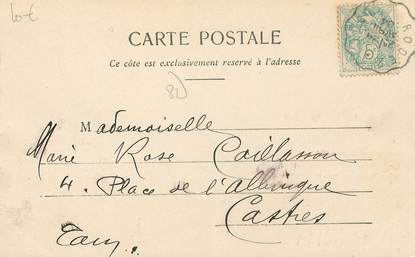 10-€
CARTE POSTALE
Ce côté est exclusivement réservé à l'adresse
81
Mademoiselle
Marie Rose Caillasson
4. Place de l'Albinque
Castres
Tarn.